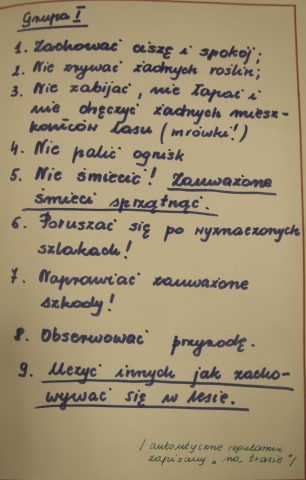 Grupa I
1. Zachować ciszę i spokój;
2. Nie zrywać żadnych roślin;
3. Nie zabijać, nie łapać i
nie dręczyć żadnych miesz-
kańców lasu (mrówki!)
4. Nie palić ognisk
5. Nie śmiecić! Zauważone
śmieci sprzątnąć.
6. Poruszać się po wyznaczonych
szlakach!
7. Naprawiać zauważone
szkody!
8. Obserwować przyrodę.
9. Uczyć innych jak zacho-
wywać się w lesie.
/autentyczne regulamin
zapisany "na trasie"/